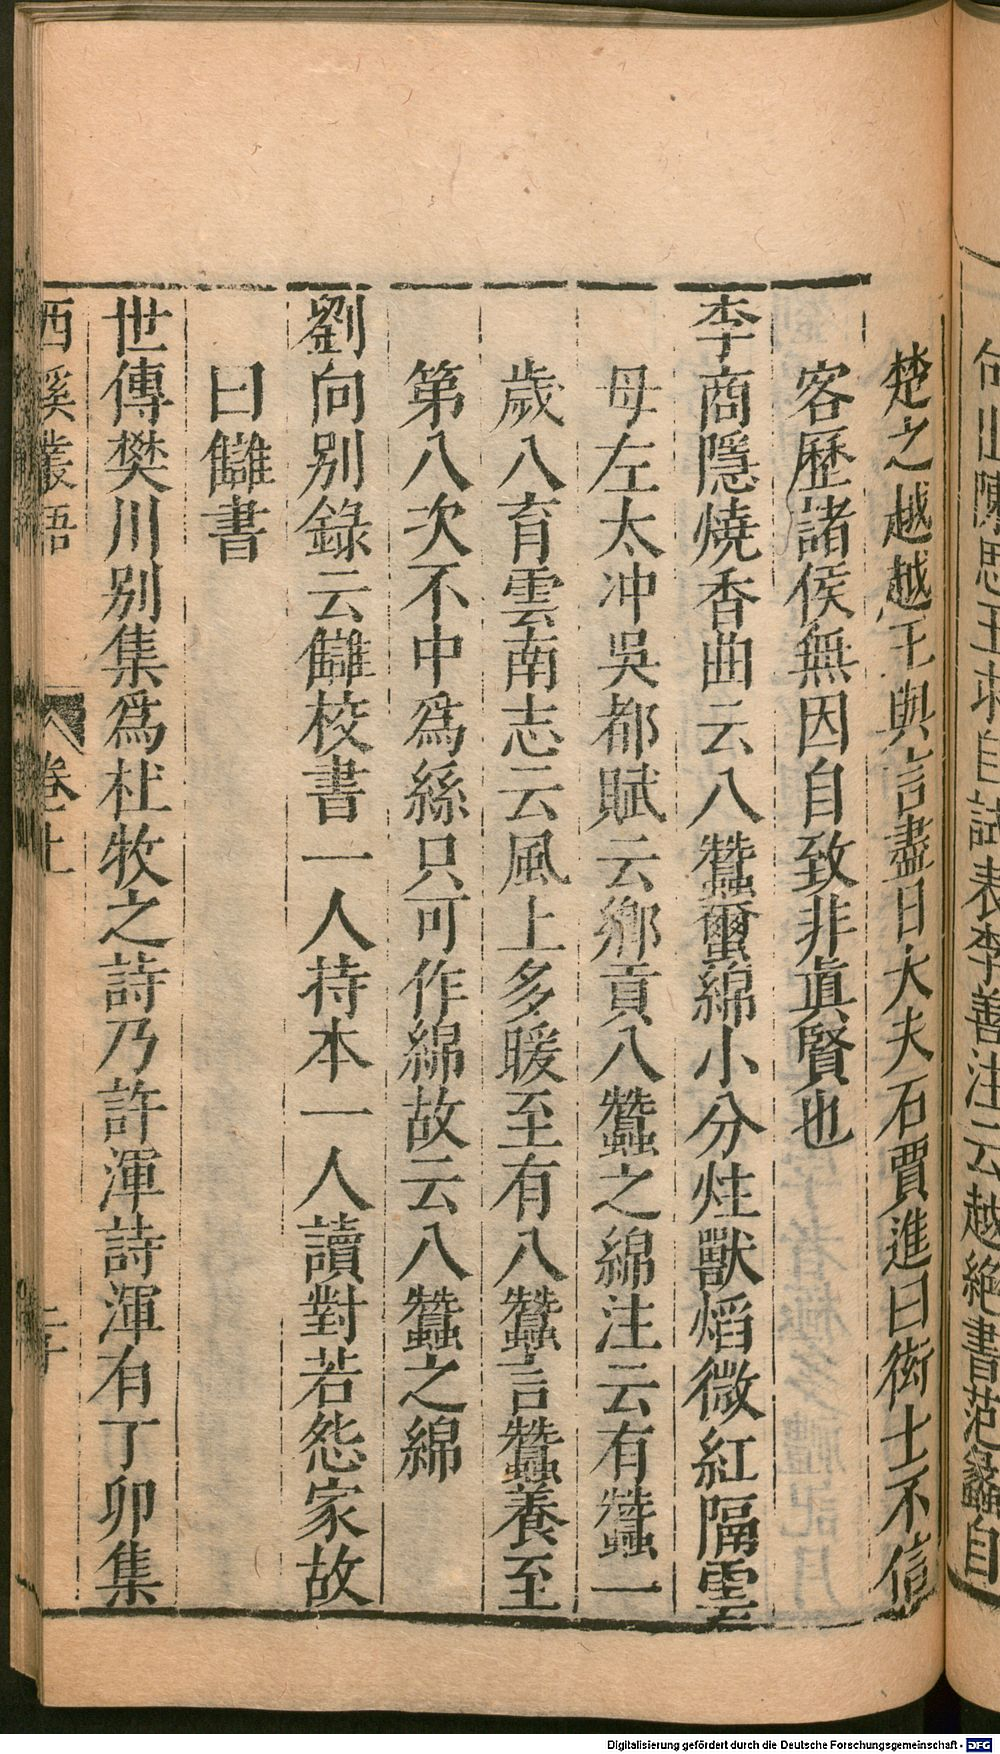 句山陳思王求自試表李善注云越絶書范蠡自
楚之越越王與言盡日大夫石賈進曰衒士不信
客歷諸侯無因自致非眞賢也
李商隱燒香曲云八蠶蠒綿小分炷獸熖微紅隔雲
母左太冲吳都賦云鄉貢八蠶之綿注云有蠶一
歲八育雲南志云風土多暖至有八蠶言蠶養至
第八次不中爲絲只可作綿故云八蠶之綿
劉向别錄云讎校書一人持本一人讀對若怨家故
曰讎書
世傳樊川别集爲杜牧之詩乃許渾詩渾有丁卯集
西溪叢語
卷上
Digitalisierung gefördert durch die Deutsche Forschungsgemeinschaft - DFG